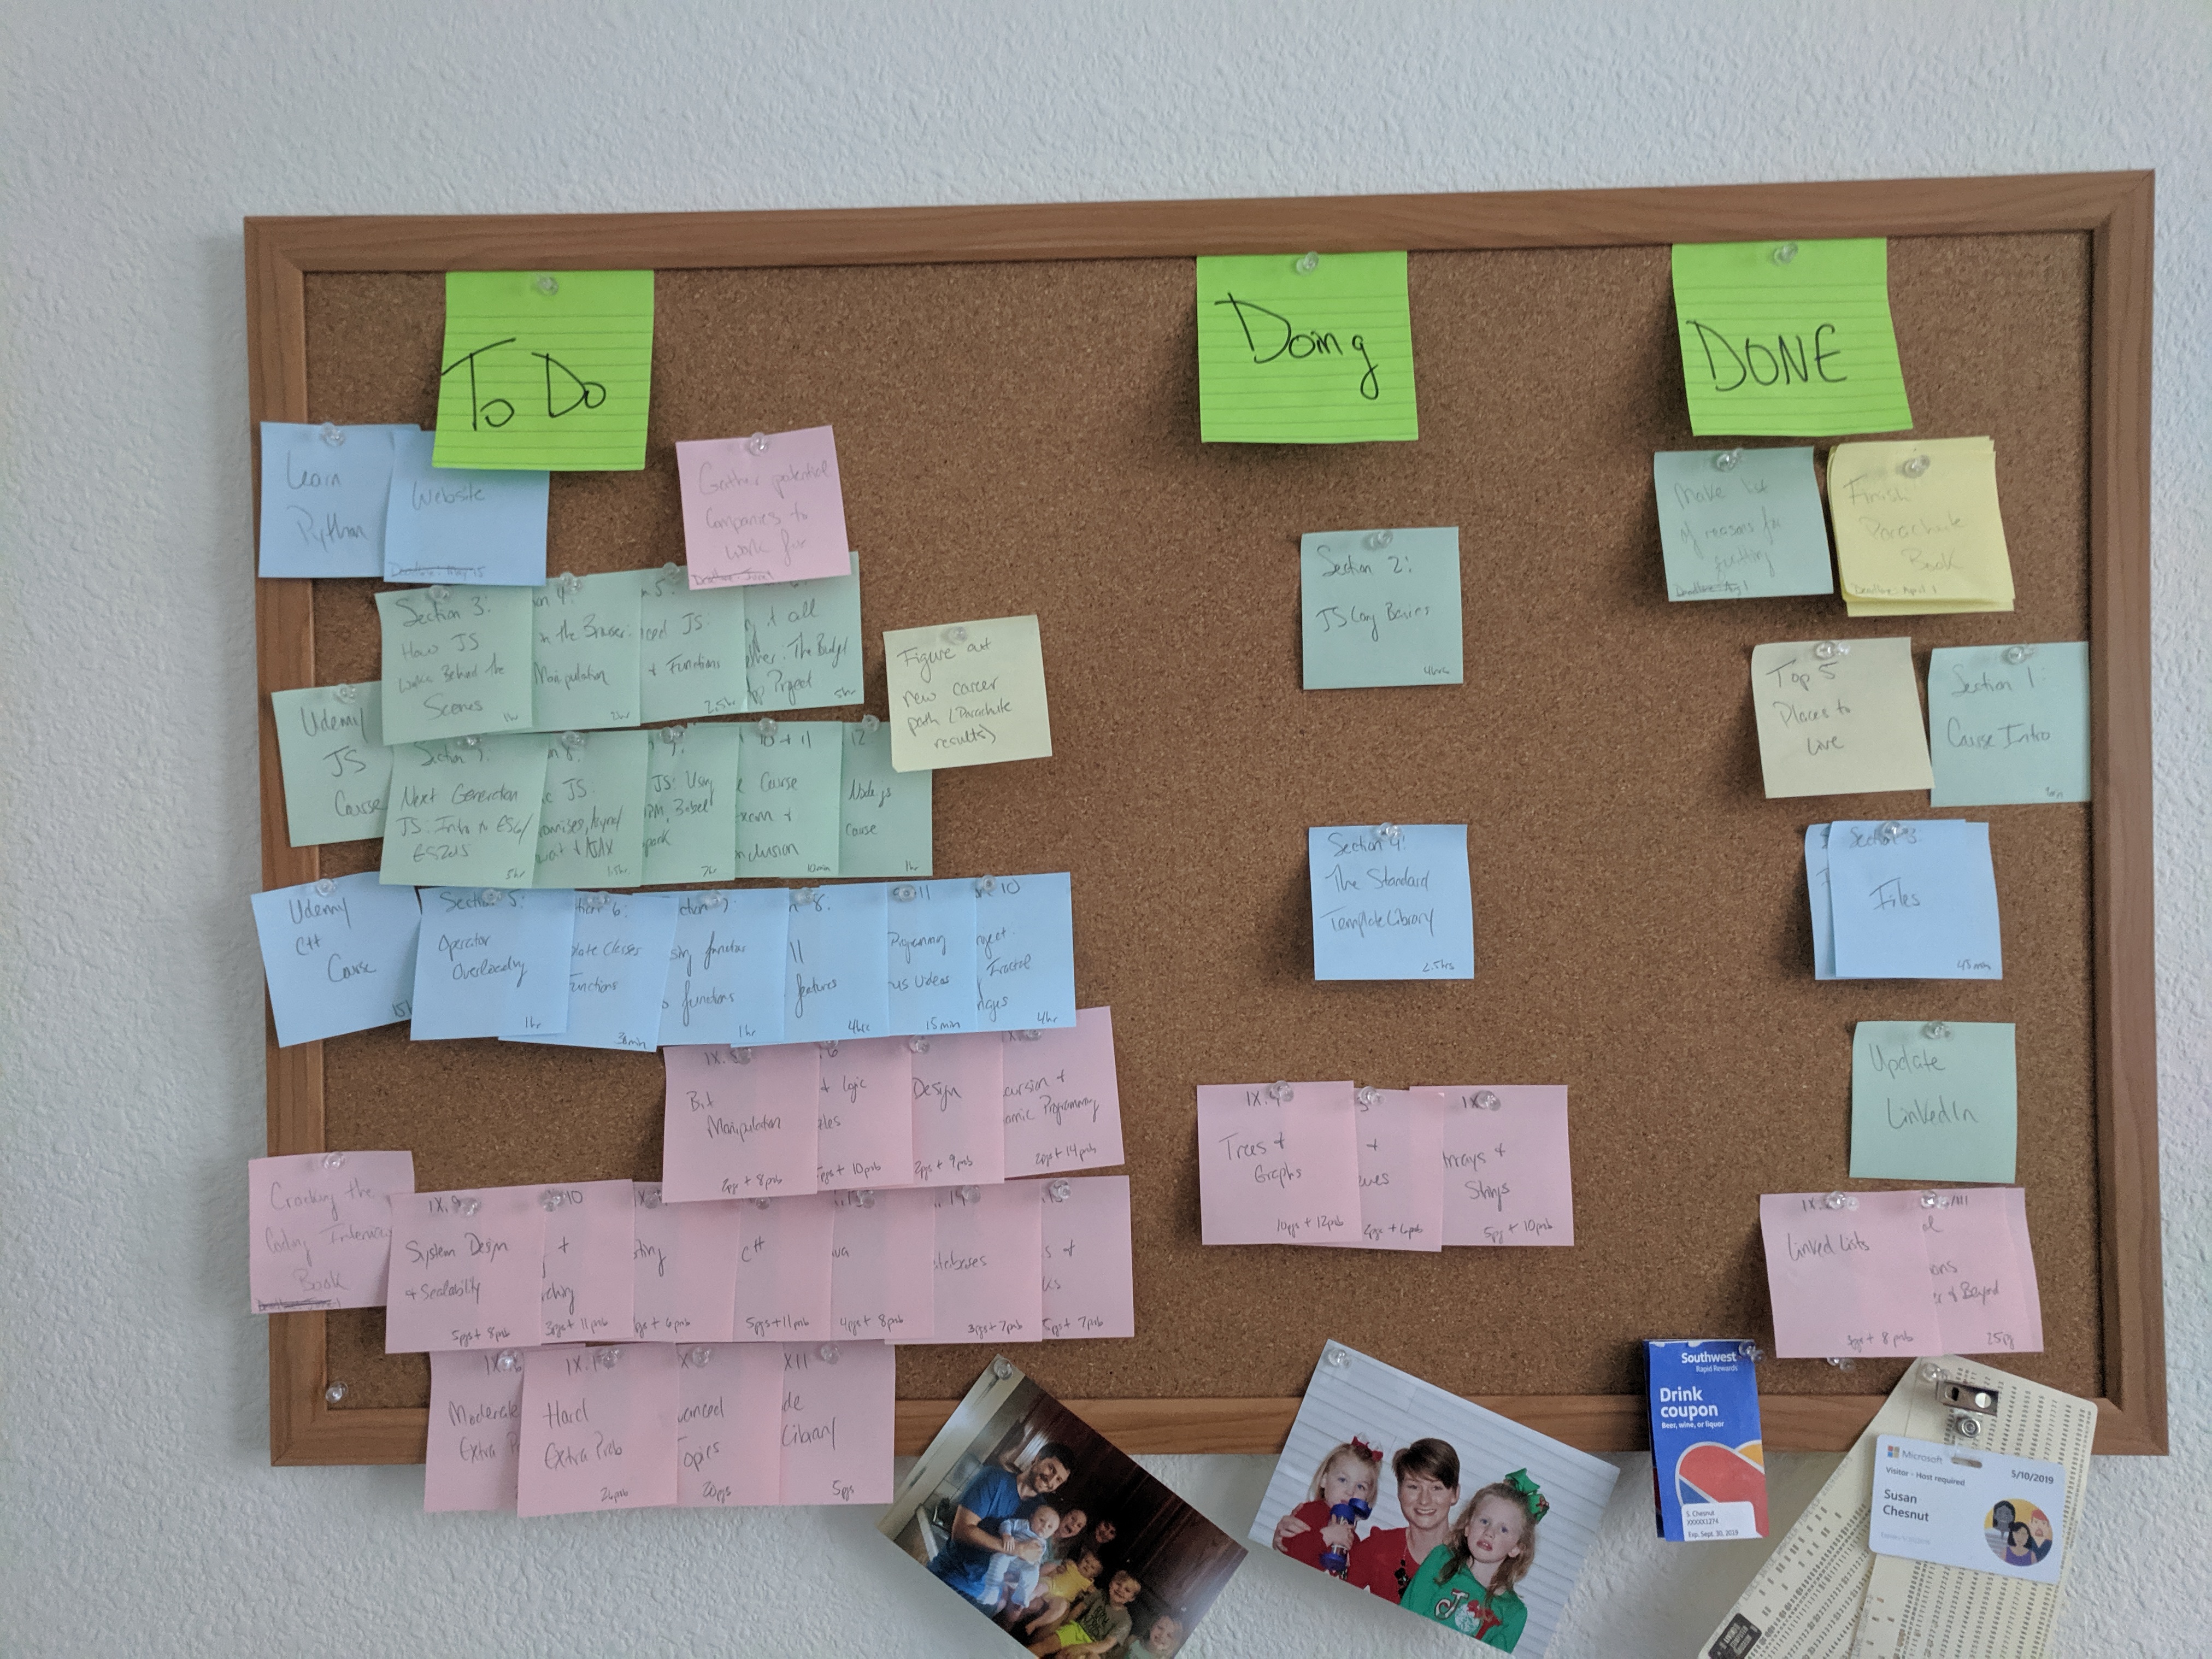 To Do
Doing
DONE
Learn
Python
Website
Gather potential
Companies to
work for
Section 3:
How JS
Works Behind the
Scenes
1hr
n 4:
in the Browser:
Manipulation
2hr
5:
ced JS:
+ Functions
2.5hr
t all
The Budget
Project
5hr
Udemy
JS
Course
Section 7:
Next Generation
JS: Intro to ES6/
ES2015
5hr
n 8:
c JS:
wait + AJAX
1.5hr
JS: Using
Babel
pack
7hr
10 + 11
e Course
+
nclusion
10min
12
Node.js
course
1hr
Figure out
new career
path (Parachute
results)
Udemy
C++
Course
Section 5:
Operator
Overloading
1hr
ction 6:
late Classes
Functions
30min
ction 7:
functions
1hr
n 8:
11
features
4hrs
11
Programming
us Videos
15min
10
roject:
Fractal
ages
4hr
IX.5
Bit
Manipulation
2pgs + 8prob
6
+ Logic
pgs + 10prob
Design
2pgs + 9prob
cursion +
amic Programming
2pgs + 14prob
Cracking the
Coding Interview
Book
IX.9
System Design
+ Scalability
5pgs + 8prob
10
+
3pgs + 11prob
sting
+ 6prob
C++
5pgs + 11prob
va
4pgs + 8prob
14
tabases
3pgs + 7prob
s +
ks
5pgs + 7prob
Moderate
Extra P
Hard
Extra Prob
26prob
vanced
opics
20pgs
XII
de
Library
5pgs
Section 2:
JS Lang Basics
4hrs
Section 4:
The Standard
Template Library
2.5hrs
IX.4
Trees +
Graphs
10pgs + 12prob
3
+
ues
pgs + 6prob
IX
rrays +
Strings
5pg + 10prob
Make list
of reasons for
quitting
Finish
Parachute
Book
Deadline: April 1
Top 5
Places to
Live
Section 1:
Course Intro
Section 3:
Files
45min
Update
LinkedIn
IX.
Linked Lists
pgs + 8 prob
ons
+ Beyond
25pg
Southwest
Rapid Rewards
Drink
coupon
Beer, wine, or liquor
S. Chesnut
XXXXX1274
Exp. Sept. 30, 2019
Microsoft
Visitor - Host required
5/10/2019
Susan
Chesnut